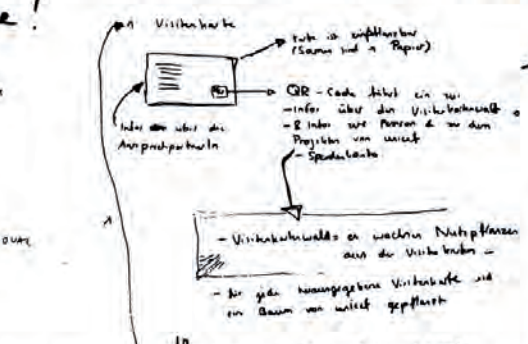 !
1 Visitenkarte
Karte ist einpflanzbar
(Samen sind in Papier)
QR-Code führt ein zu:
- Infos über den Visitenkartenwald
- & Infos zur Person & zu den
Projekten von unicef
- Spendenkonto
Infos über die
AnsprechpartnerIn
- Visitenkartenwald: es wachsen Nutzpflanzen
aus den Visitenkarten
- für jede herausgegebene Visitenkarte wird
ein Baum von unicef gepflanzt